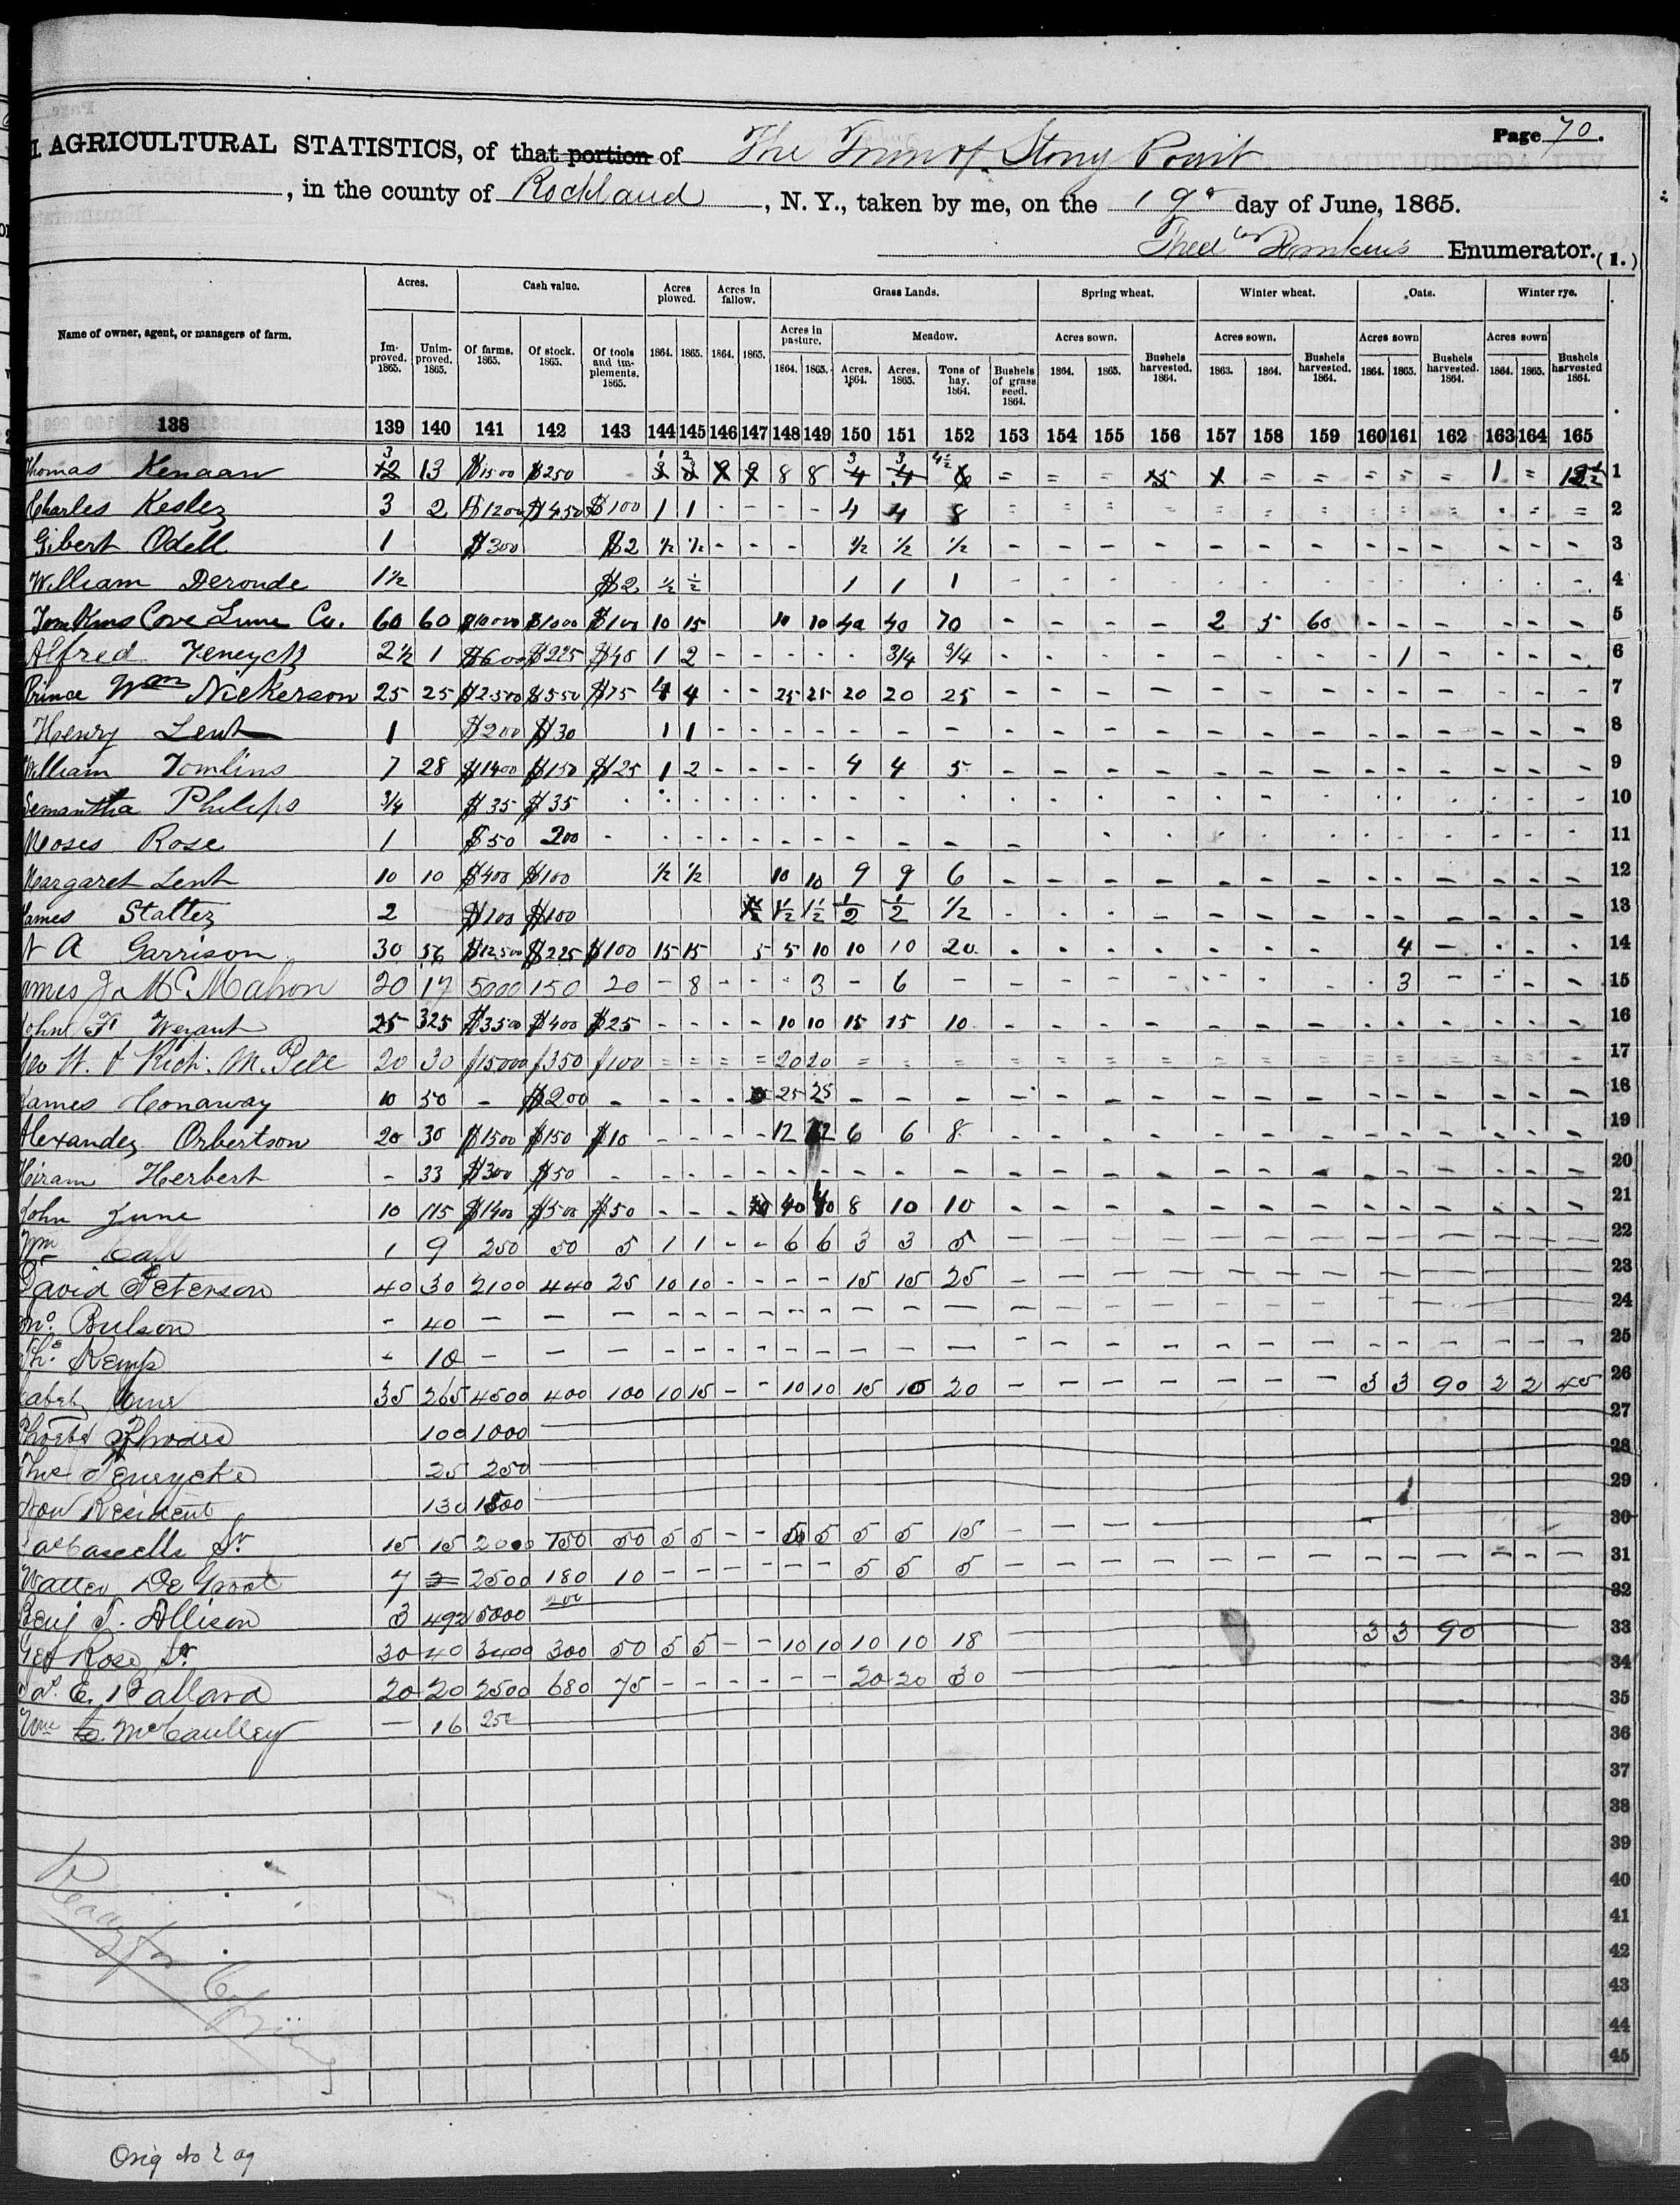 Page 70.
AGRICULTURAL STATISTICS, of that portion of The Town of Stony Point
, in the county of Rockland, N. Y., taken by me, on the 19 day of June, 1865.
Tompkins Enumerator. (1.)
Name of owner, agent, or managers of farm. Acres. Cash value. Acres plowed. Acres in fallow. Grass Lands. Spring wheat. Winter wheat. Oats. Winter rye.
Acres in pasture. Meadow. Acres sown. Bushels harvested. 1864. Acres sown. Bushels harvested. 1864. Acres sown Bushels harvested. 1864. Acres sown Bushels harvested 1864.
Improved. 1865. Unimproved. 1865. Of farms. 1865. Of stock. 1865. Of tools and implements. 1865. 1864. 1865. 1864. 1865. 1864. 1865. Acres. 1864. Acres. 1865. Tons of hay. 1864. Bushels of grass seed. 1864. 1864. 1865. 1863. 1864. 1864. 1865. 1864. 1865.
138 139 140 141 142 143 144 145 146 147 148 149 150 151 152 153 154 155 156 157 158 159 160 161 162 163 164 165
Thomas Kenaan 3 13 $1500 $250 1 2 8 8 3 3 4½ = = = = = = = = = 1 = 1
Charles Kesler 3 2 $1200 $450 $100 1 1 - - - - 4 4 8 = = = = = = = = = = = = = 2
Gibert Odell 1 $300 $2 ½ ½ - - - ½ ½ ½ - - - - - - - - - - - - - 3
William Deronde 1½ $2 ½ ½ 1 1 1 - - - - - - - - - - - - - 4
Tomkins Cove Lime Co. 60 60 $10000 $1000 $100 10 15 10 10 40 40 70 - - - - 2 5 60 - - - - - - 5
Alfred Teneyck 2½ 1 $600 $225 $40 1 2 - - - - - ¾ ¾ - - - - - - - - 1 - - - - 6
Prince Wm Nickerson 25 25 $2500 $550 $75 4 4 - - 25 25 20 20 25 - - - - - - - - - - - - - 7
Henry Lent 1 $200 $30 1 1 - - - - - - - - - - - - - - - - - - - - - 8
William Tomlins 7 28 $1400 $150 $25 1 2 - - - - 4 4 5 - - - - - - - - - - - - - 9
Semantha Philips ¾ $35 $35 - - - - - - - - - - - - - - - - - - - - - - - 10
Moses Rose 1 $50 200 - - - - - - - - - - - - - - - - - - - - - - 11
Margaret Lent 10 10 $400 $100 ½ ½ 10 10 9 9 6 - - - - - - - - - - - - - 12
James Statter 2 $100 $100 1½ 1½ ½ ½ ½ - - - - - - - - - - - - - 13
A Garrison 30 56 $12500 $225 $100 15 15 5 5 10 10 10 20 - - - - - - - 4 - - - - 14
James J. McMahon 20 17 5000 150 20 - 8 - - - 3 - 6 - - - - - - - - - 3 - - - - 15
John F Weyant 25 325 $3500 $400 $25 - - - - 10 10 15 15 10 - - - - - - - - - - - - - 16
W. & Rich. M. Pell 20 30 $15000 $350 $100 = = = = 20 20 = = = = = = = = = = = = = = = - 17
James Conaway 10 50 - $200 - - - - 25 25 - - - - - - - - - - - - - - - - 18
Alexander Orbertson 20 30 $1500 $150 $10 - - - - 12 12 6 6 8 - - - - - - - - - - - - - 19
Hiram Herbert - 33 $300 $50 - - - - - - - - - - - - - - - - - - - - - - - 20
John June 10 115 $1400 $500 $50 - - - 40 40 8 10 10 - - - - - - - - - - - - - 21
Wm Call 1 9 250 50 5 1 1 - - 6 6 3 3 5 - - - - - - - - - - - - - 22
David Peterson 40 30 2100 440 25 10 10 - - - - 15 15 25 - - - - - - - - - - - - - 23
Jno. Bulson - 40 - - - - - - - - - - - - - - - - - - - - - - - - - 24
Kemp - 10 - - - - - - - - - - - - - - - - - - - - - - - - - 25
June 35 265 4500 400 100 10 15 - - 10 10 15 15 20 - - - - - - - 3 3 90 2 2 45 26
Phoebe Rhodes 100 1000 27
Teneycke 25 250 28
Non Resident 130 1500 29
Sr. 15 15 2000 750 50 5 5 - - 5 5 5 5 15 - - - - 30
Walter De Groot 7 2500 180 10 - - - - - - 5 5 5 - - - - - - - - - - - - - 31
Benj T. Allison 3 492 5000 200 32
Geo Rose Sr. 30 40 3400 300 50 5 5 - - 10 10 10 10 18 3 3 90 33
E. Ballard 20 20 2500 680 75 - - - - - - 20 20 30 34
Wm McCaulley - 16 250 35
36
37
38
39
40
41
42
43
44
45
Ready for
Orig